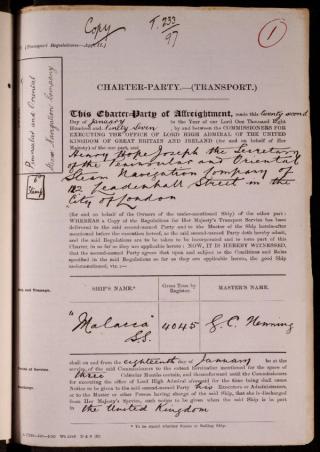 Copy
T. 233/97
1
(Transport Regulations—
Peninsular and Oriental
Steam Navigation Company
6d
Stamp
CHARTER-PARTY.—(TRANSPORT.)
This Charter-Party of Affreightment, made this twenty second
Day of January in the Year of our Lord One Thousand Eight
Hundred and Ninety Seven, by and between the COMMISSIONERS FOR
EXECUTING THE OFFICE OF LORD HIGH ADMIRAL OF THE UNITED
KINGDOM OF GREAT BRITAIN AND IRELAND (for and on behalf of Her
Majesty) of the one part, and
Henry Hope Joseph the Secretary
of the Peninsular and Oriental
Steam Navigation Company of
122 Leadenhall Street in the
City of London
(for and on behalf of the Owners of the under-mentioned Ship) of the other part:
WHEREAS a Copy of the Regulations for Her Majesty's Transport Service has been
delivered to the said second-named Party and to the Master of the Ship herein-after
mentioned before the execution hereof, as the said second-named Party doth hereby admit,
and the said Regulations are to be taken to be incorporated and to form part of this
Charter, in so far as they are applicable hereto: NOW, IT IS HEREBY WITNESSED,
that the second-named Party agrees that upon and subject to the Conditions and Rules
specified in the said Regulations so far as they are applicable hereto, the good Ship
undermentioned, viz.:—
SHIP'S NAME*
Gross Tons by Register.
MASTER'S NAME.
"Malacca" SS.
4045
G. C. Henning
shall on and from the eighteenth day of January be at the
service of the said Commissioners to the extent hereinafter mentioned for the space of
three Calendar Months certain, and thenceforward until the Commissioners
for executing the office of Lord High Admiral aforesaid for the time being shall cause
Notice to be given to the said second-named Party his Executors or Administrators,
or to the Master or other Person having charge of the said Ship, that she is discharged
from Her Majesty's Service, such notice to be given when the said Ship is in part
in the United Kingdom
* To be stated whether Steam or Sailing Ship.